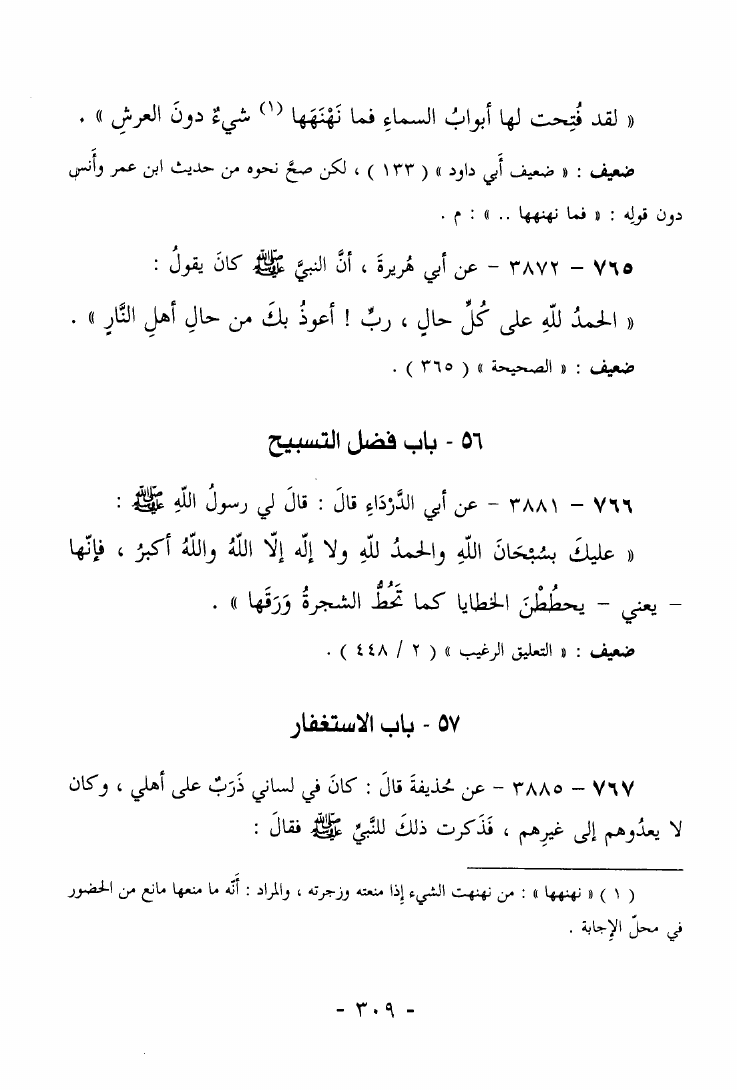 « لقد فُتِحت لها أبوابُ السماءِ فما نَهْنَهَها (١) شيءٌ دونَ العرشِ » .
ضعيف : « ضعيف أَبي داود » ( ١٣٣ ) ، لكن صحَّ نحوه من حديث ابن عمر وأَنس
دون قولِه : « فما نهنهها .. » : م .
٧٦٥ – ٣٨٧٢ – عن أبي هُريرةَ ، أنَّ النبيَّ ﷺ كانَ يقولُ :
« الحمدُ للّهِ على كُلِّ حالٍ ، ربِّ ! أعوذُ بكَ من حالِ أهلِ النَّارِ » .
ضعيف : « الصحيحة » ( ٣٦٥ ) .
٥٦ - باب فضل التسبيح
٧٦٦ – ٣٨٨١ – عن أبي الدَّرْدَاءِ قالَ : قالَ لي رسولُ اللّهِ ﷺ :
« عليكَ بسُبْحَانَ اللّهِ والحمدُ للّهِ ولا إلٰه إلّا اللّهُ واللّهُ أكبرُ ، فإنّها
– يعني – يحطُطْنَ الخطايا كما تَحُطُّ الشجرةُ وَرَقَها » .
ضعيف : « التعليق الرغيب » ( ٢ / ٤٤٨ ) .
٥٧ - باب الاستغفار
٧٦٧ – ٣٨٨٥ – عن حُذيفةَ قالَ : كانَ في لساني ذَرَبٌ على أهلي ، وكان
لا يعدُوهم إلى غيرِهم ، فَذَكرت ذلكَ للنَّبيِّ ﷺ فقالَ :
( ١ ) « نهنهها » : من نهنهت الشيء إِذا منعته وزجرته ، والمراد : أَنّه ما منعها مانع من الحضور
في محلّ الإِجابة .
- ٣٠٩ -